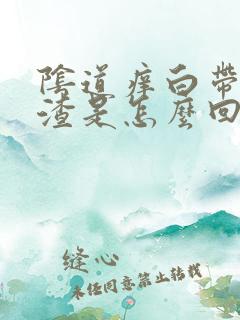 陰道痒白帶
渣是怎麼回
缝心
未经同意禁止转载